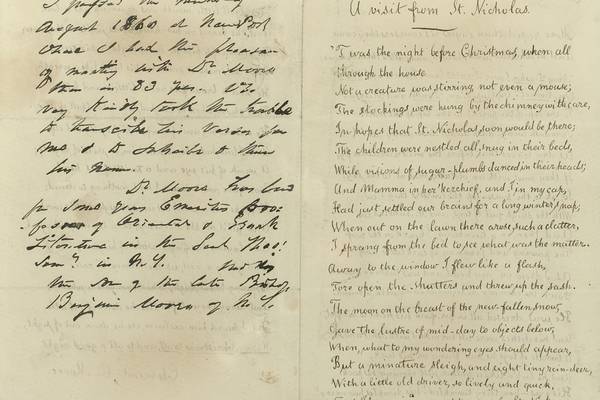 I passed the
August 1860 at Newport
where I had the pleasure
of meeting with Dr. Moore
then in 83 year.
very kindly took the trouble
to transcribe his verses for
me & to subscribe to them
his name.
Dr. Moore has been
for some years Emeritus Pro-
-fessor of Oriental & Greek
Literature in the
in N.Y.
the son of the late Bishop
Benjamin Moore of N.Y.
A visit from St. Nicholas.
'Twas the night before Christmas, when all
through the house
Not a creature was stirring, not even a mouse;
The stockings were hung by the chimney with care,
In hopes that St. Nicholas soon would be there;
The children were nestled all snug in their beds,
While visions of sugar-plumbs danced in their heads;
And Mamma in her 'kerchief, and I in my cap,
Had just settled our brains for a long winter's nap;
When out on the lawn there arose such a clatter,
I sprang from the bed to see what was the matter.
Away to the window I flew like a flash,
Tore open the shutters and threw up the sash.
The moon on the breast of the new-fallen snow,
Gave the lustre of mid-day to objects below,
When, what to my wondering eyes should appear,
But a minature sleigh, and eight tiny rein-deer,
With a little old driver, so lively and quick,